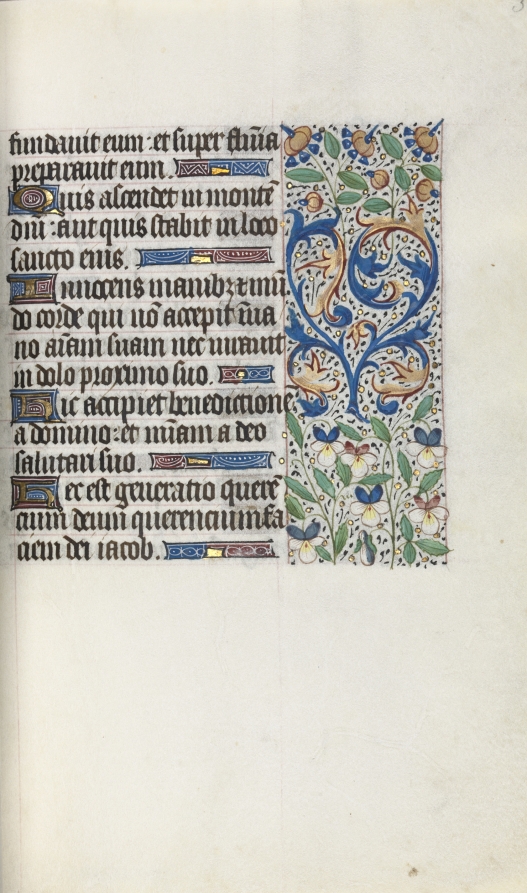 fundauit eum : et super flūia
preparauit eum.
Quis ascendet in montē
dn̄i : aut quis stabit in loco
sancto eius.
Innocens manibꝫ ⁊ mū
do corde qui nō accepit ī ua
no aīam suam nec iurauit
in dolo proximo suo.
Hic accipiet benedictione
a domino : et mīam a deo
salutari suo.
Hec est generatio querē
cium deum querencium fa
ciem dei iacob.